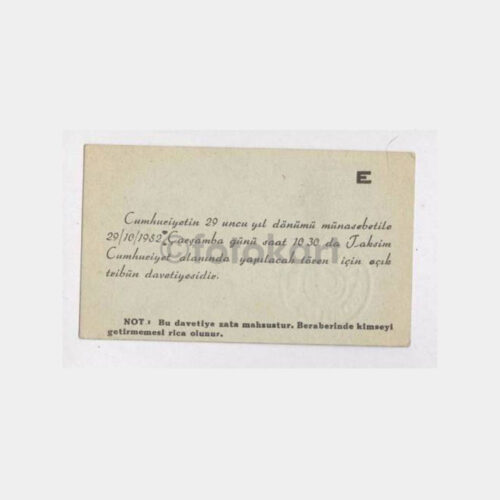 E
Cumhuriyetin 29 uncu yıl dönümü münasebetile
29/10/1952 Çarşamba günü saat 10.30 da Taksim
Cumhuriyet alanında yapılacak tören için açık
tribün davetiyesidir.
NOT : Bu davetiye zata mahsustur. Beraberinde kimseyi
getirmemesi rica olunur.